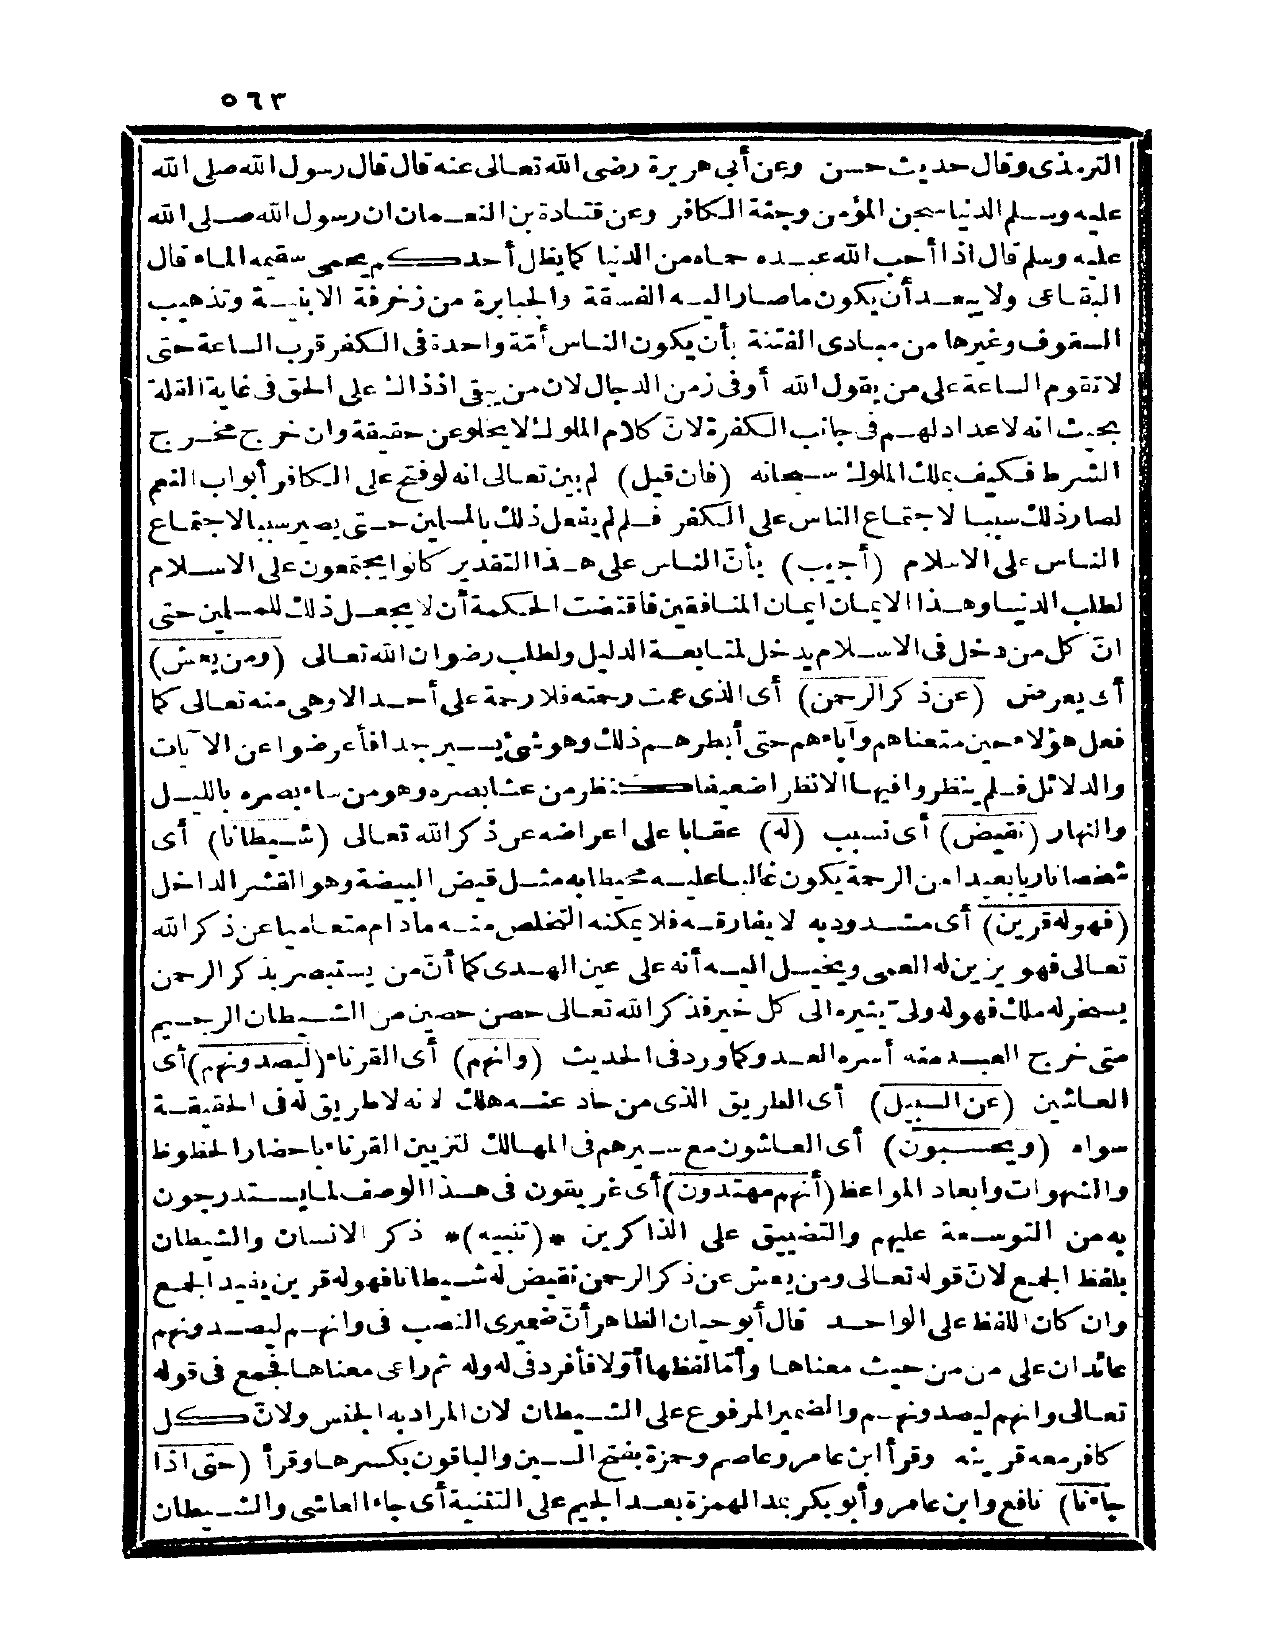 ٥٦٣
الترمذى وقال حديث حسن وعن أبى هريرة رضى الله تعالى عنه قال قال رسول الله صلى الله
عليه وسلم الدنيا سجن المؤمن وجنة الكافر وعن قتادة بن النعمان ان رسول الله صلى الله
عليه وسلم قال اذا أحب الله عبده حماه من الدنيا كما يظل أحدكم يحمى سقيمه الماء قال
البقاعى ولا يبعد أن يكون ما صار اليه الفسقة والجبابرة من زخرفة الابنية وتذهيب
السقوف وغيرها من مبادى الفتنة بأن يكون الناس أمّة واحدة فى الكفر قرب الساعة حتى
لا تقوم الساعة على من يقول الله أو فى زمن الدجال لان من يبقى اذذاك على الحق فى غاية القلة
بحيث انه لا عداد لهم فى جانب الكفرة لانّ كلام الملوك لا يخلو عن حقيقة وان خرج مخرج
الشرط فكيف بملك الملوك سبحانه (فان قيل) لم بين تعالى انه لو فتح على الكافر أبواب النعم
لصار ذلك سببا لاجتماع الناس على الكفر فلم لم يفعل ذلك بالمسلمين حتى يصير سببا لاجتماع
الناس على الاسلام (أجيب) بأنّ الناس على هذا التقدير كانوا يجتمعون على الاسلام
لطلب الدنيا وهذا الايمان ايمان المنافقين فاقتضت الحكمة أن لا يجعل ذلك للمسلمين حتى
انّ كل من دخل فى الاسلام يدخل لمتابعة الدليل ولطلب رضوان الله تعالى (ومن يعش)
أى يعرض (عن ذكر الرحمن) أى الذى عمت رحمته فلا رحمة على أحد الا وهى منه تعالى كما
فعل هؤلاء حين متعناهم وآباءهم حتى أبطرهم ذلك وهو شئ يسير جدا فأعرضوا عن الآيات
والدلائل فلم ينظروا فيها الا نظرا ضعيفا كنظر من عشا بصره وهو من ساء بصره بالليل
والنهار (نقيض) أى نسبب (له) عقابا على اعراضه عن ذكر الله تعالى (شيطانا) أى
شخصا ناريا بعيدا من الرحمة يكون غالبا عليه محيطا به مثل قيض البيضة وهو القشر الداخل
(فهو له قرين) أى مشدود به لا يفارقه فلا يمكنه التخلص منه ما دام متعاميا عن ذكر الله
تعالى فهو يزين له العمى ويخيل اليه أنه على عين الهدى كما أنّ من يستبصر بذكر الرحمن
يسخر له ملك فهو له ولىّ يبشره الى كل خير فذكر الله تعالى حصن حصين من الشيطان الرجيم
متى خرج العبد منه أسره العدو كما ورد فى الحديث (وانهم) أى القرناء (ليصدونهم) أى
العاشين (عن السبيل) أى الطريق الذى من حاد عنه هلك لانه لا طريق له فى الحقيقة
سواه (ويحسبون) أى العاشون مع سيرهم فى المهالك لتزيين القرناء باحضار الحظوظ
والشهوات وابعاد المواعظ (أنهم مهتدون) أى غريقون فى هذا الوصف لما يستدرجون
به من التوسعة عليهم والتضييق على الذاكرين *(تنبيه)* ذكر الانسان والشيطان
بلفظ الجمع لانّ قوله تعالى ومن يعش عن ذكر الرحمن نقيض له شيطانا فهو له قرين يفيد الجمع
وان كان اللفظ على الواحد قال أبو حيان الظاهر أنّ ضميرى النصب فى وانهم ليصدونهم
عائدان على من من حيث معناها وأمّا لفظها أوّلا فأفرد فى له وله ثم راعى معناها فجمع فى قوله
تعالى وانهم ليصدونهم والضمير المرفوع على الشيطان لان المراد به الجنس ولانّ كل
كافر معه قرينه وقرأ ابن عامر وعاصم وحمزة بفتح السين والباقون بكسرها وقرأ (حتى اذا
جاءنا) نافع وابن عامر وأبو بكر بمد الهمزة بعد الجيم على التثنية أى جاء العاشى والشيطان